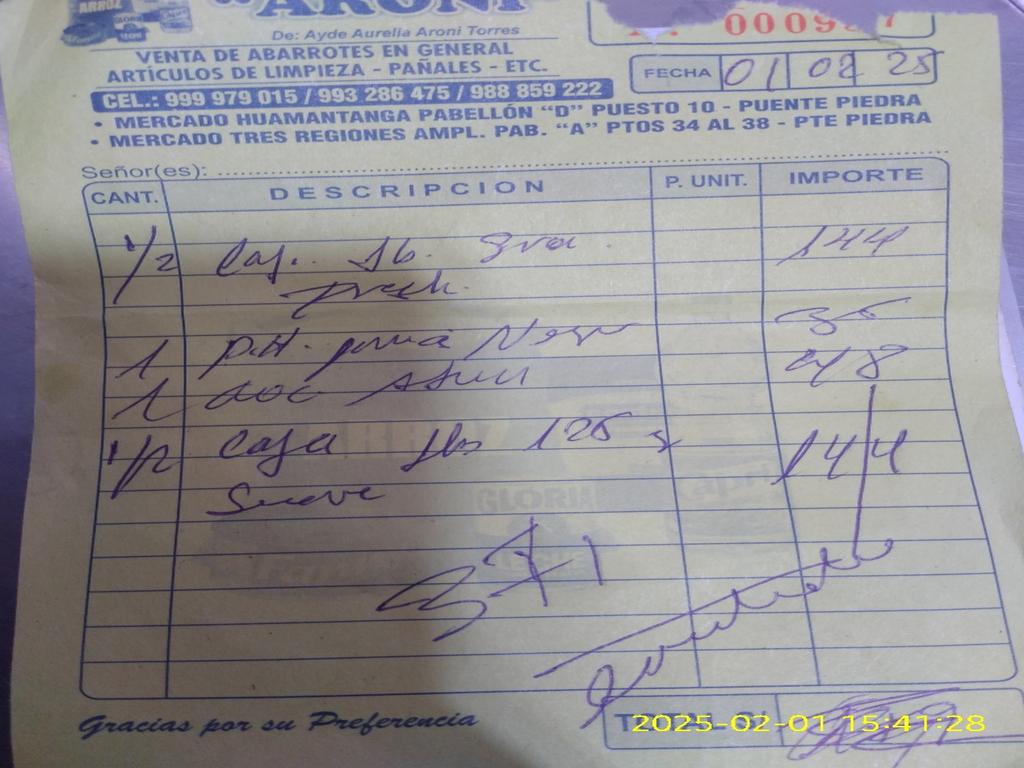 ARROZ
"ARONI"
GLORIA
Capri
De: Ayde Aurelia Aroni Torres
VENTA DE ABARROTES EN GENERAL
ARTÍCULOS DE LIMPIEZA - PAÑALES - ETC.
CEL.: 999 979 015 / 993 286 475 / 988 859 222
• MERCADO HUAMANTANGA PABELLÓN "D" PUESTO 10 - PUENTE PIEDRA
• MERCADO TRES REGIONES AMPL. PAB. "A" PTOS 34 AL 38 - PTE PIEDRA
FECHA 01 02 25
Señor(es):
CANT. DESCRIPCION P. UNIT. IMPORTE
1/2 Caj. Jb. 144
1 P.H. Negr
1 48
1/2 Caja Jbs 125 g 144
Suave
GLORIA
Capri
371
Gracias por su Preferencia
TOTAL S/
2025-02-01 15:41:28